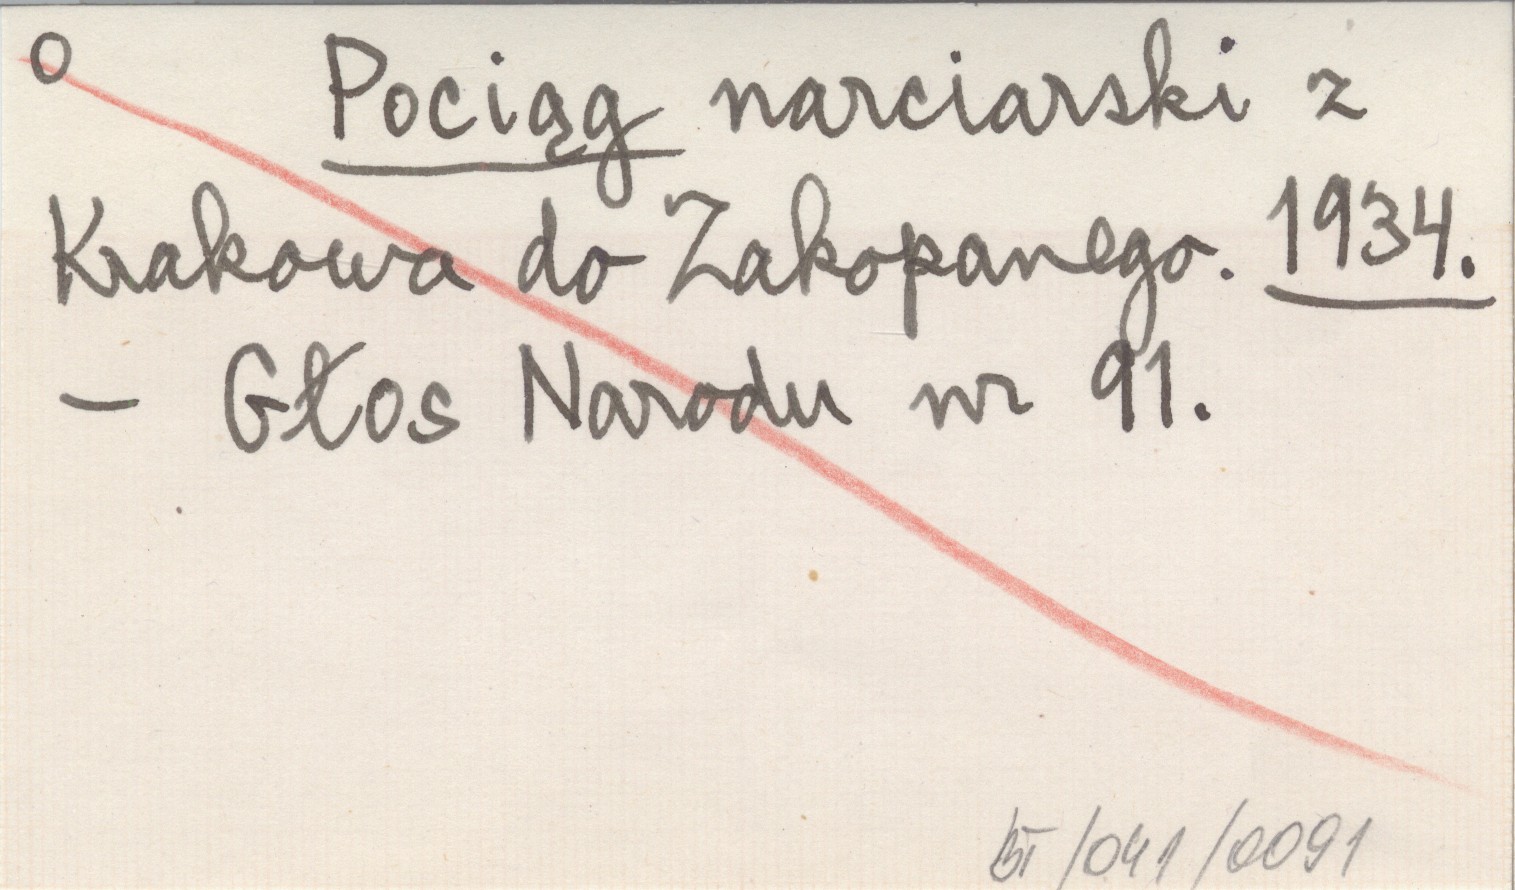 O Pociąg narciarski z
Krakowa do Zakopanego. 1934.
- Głos Narodu nr 91.
/041/0091